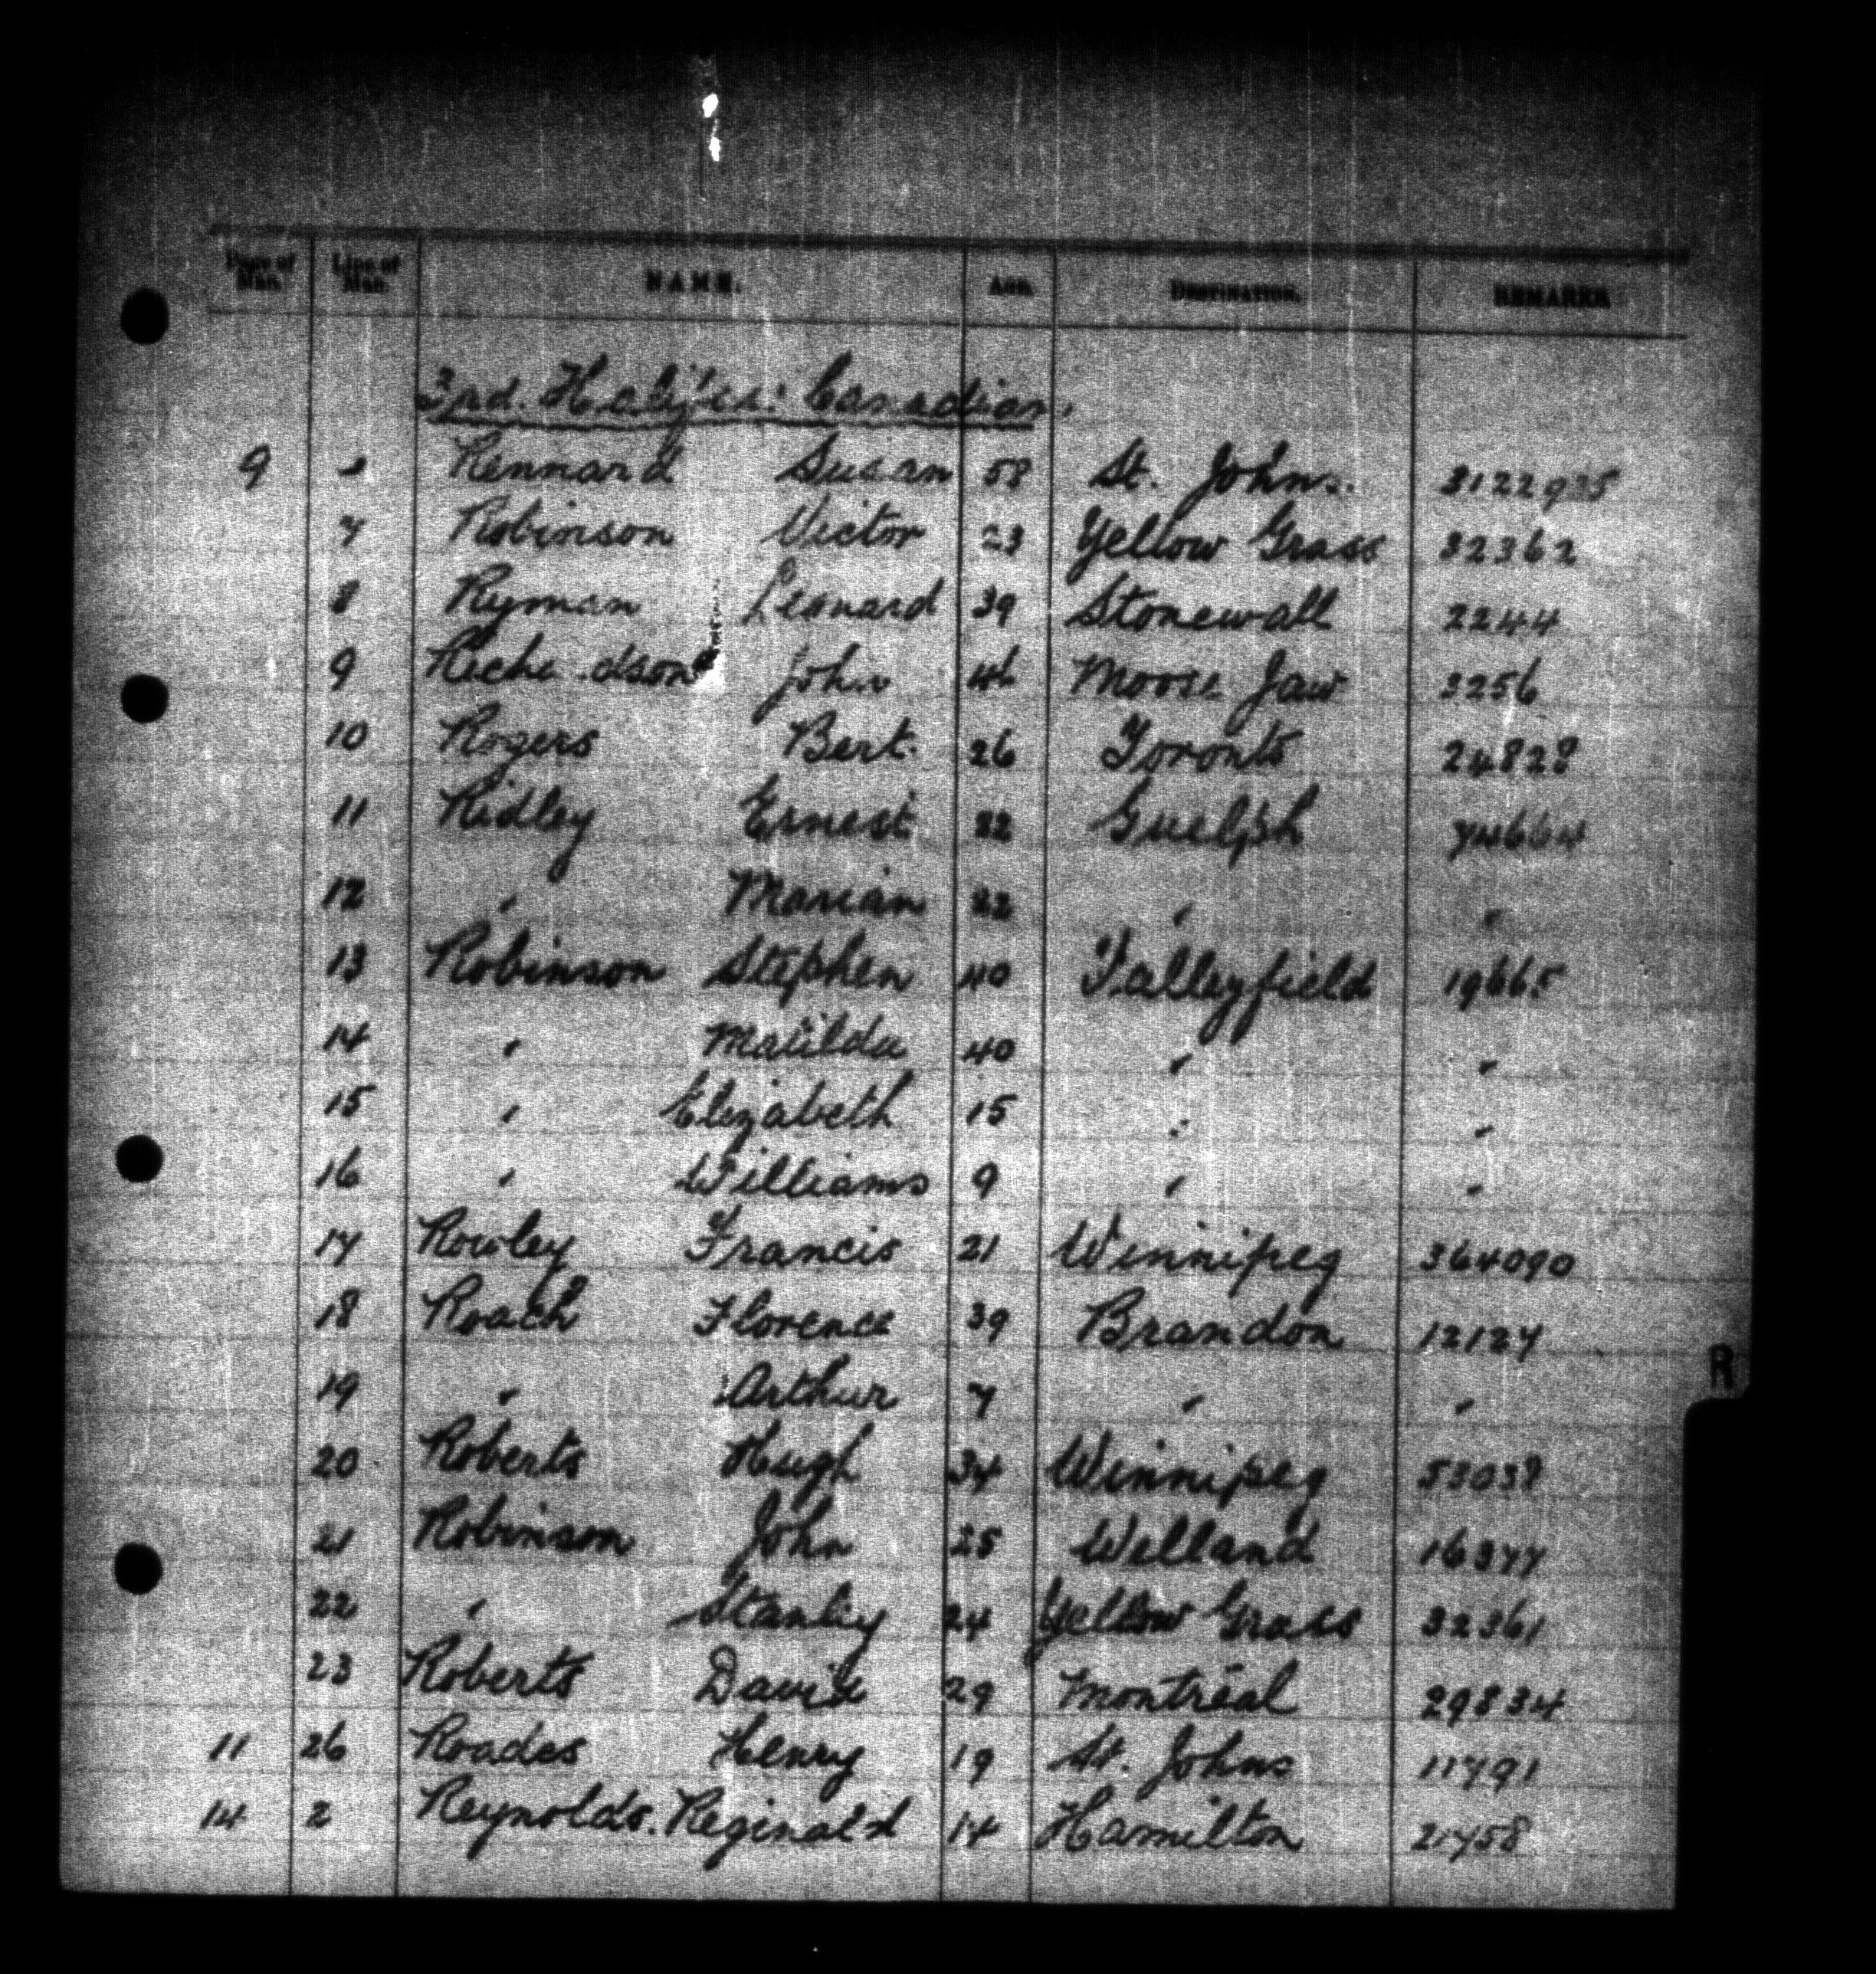 Page of Man. Line of Man. NAME. AGE. DESTINATION. REMARKS
3rd. Halifax: Canadian.
9 " Rennard Susan 58 St. Johns. 3122925
7 Robinson Victor 23 Yellow Grass 32362
8 Ryman Leonard 39 Stonewall 2244
9 Richa dson John 46 Moose Jaw 3256
10 Rogers Bert. 26 Toronto 24828
11 Ridley Ernest 22 Guelph 74664
12 " Marian 22 " "
13 Robinson Stephen 40 Valleyfield 19665
14 " Matilda 40 " "
15 " Elizabeth 15 " "
16 " Williams 9 " "
17 Rowley Francis 21 Winnipeg 364090
18 Roach Florence 39 Brandon 12127
19 " Arthur 7 " "
20 Roberts Hugh 34 Winnipeg 53038
21 Robinson John 25 Welland 16377
22 " Stanley 24 Yellow Grass 32361
23 Roberts David 29 Montreal 29834
11 26 Roades Henry 19 St. Johns 11791
14 2 Reynolds. Reginald 14 Hamilton 21758
R